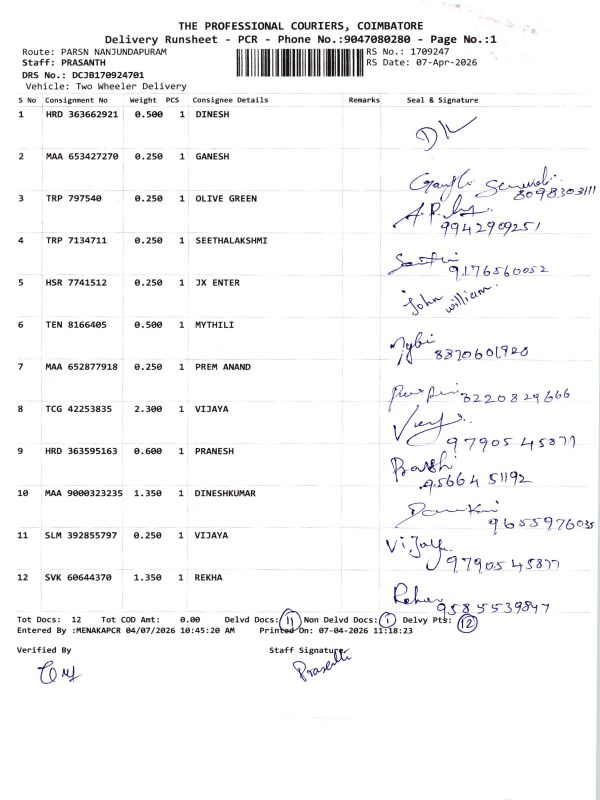 THE PROFESSIONAL COURIERS, COIMBATORE
Delivery Runsheet - PCR - Phone No.:9047080280 - Page No.:1
Route: PARSN NANJUNDAPURAM RS No.: 1709247
Staff: PRASANTH RS Date: 07-Apr-2026
DRS No.: DCJB170924701
Vehicle: Two Wheeler Delivery
S No Consignment No Weight PCS Consignee Details Remarks Seal & Signature
1 HRD 363662921 0.500 1 DINESH
2 MAA 653427270 0.250 1 GANESH
8098303111
3 TRP 797540 0.250 1 OLIVE GREEN
9942909251
4 TRP 7134711 0.250 1 SEETHALAKSHMI
9176560052
5 HSR 7741512 0.250 1 JX ENTER
John william
6 TEN 8166405 0.500 1 MYTHILI
8370601920
7 MAA 652877918 0.250 1 PREM ANAND
6220829666
8 TCG 42253835 2.300 1 VIJAYA
9790545877
9 HRD 363595163 0.600 1 PRANESH
9566451192
10 MAA 9000323235 1.350 1 DINESHKUMAR
9655976035
11 SLM 392855797 0.250 1 VIJAYA
Vijaya
9790545877
12 SVK 60644370 1.350 1 REKHA
9585539847
Tot Docs: 12 Tot COD Amt: 0.00 Delvd Docs: 11 Non Delvd Docs: 1 Delvy Pts: 12
Entered By :MENAKAPCR 04/07/2026 10:45:20 AM Printed On: 07-04-2026 11:18:23
Verified By Staff Signature
Prasanth